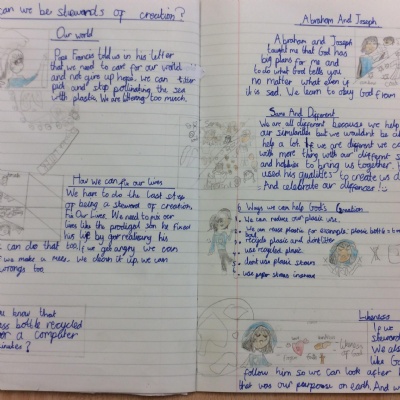 can we be stewards of creation?
Our world
Pope Francis told us in his letter
that we need to care for our world
and not give up hope. we can
and stop polluting the sea
with plastic. We are littering too much.
How we can fix our lives
We have to do the last step
of being a steward of creation.
fix Our Lives. We need to fix our
lives like the prodigal son he fixed
his life by realising his
can do that too. If we get angry we can
if we make a mess. We clean it up, we can
wrongs too.
you know that
bottle recycled
for a computer
minutes?
Abraham And Joseph
Abraham and Joseph
taught me that God has
big plans for me and
to do what God tells you
no matter what even if
it is sad. We learn to obey God from
Same And Different
We are all different because we help
our similarities but we wouldn't be
help a lot if we are different we
with more thing with our different
and hobbies to bring us together.
used his qualities to create us
And celebrate our differences!
6 Ways we can help God's Creation
We can reduce our plastic use.
We can reuse plastic for example: plastic bottle =
recycle plastic and dont litter
use recycled plastic
dont use plastic straws
use paper straws instead
Likeness
Likeness
of God
If we
steward
We als
like Go
follow him so we can look after
that was our purpose on earth. And w